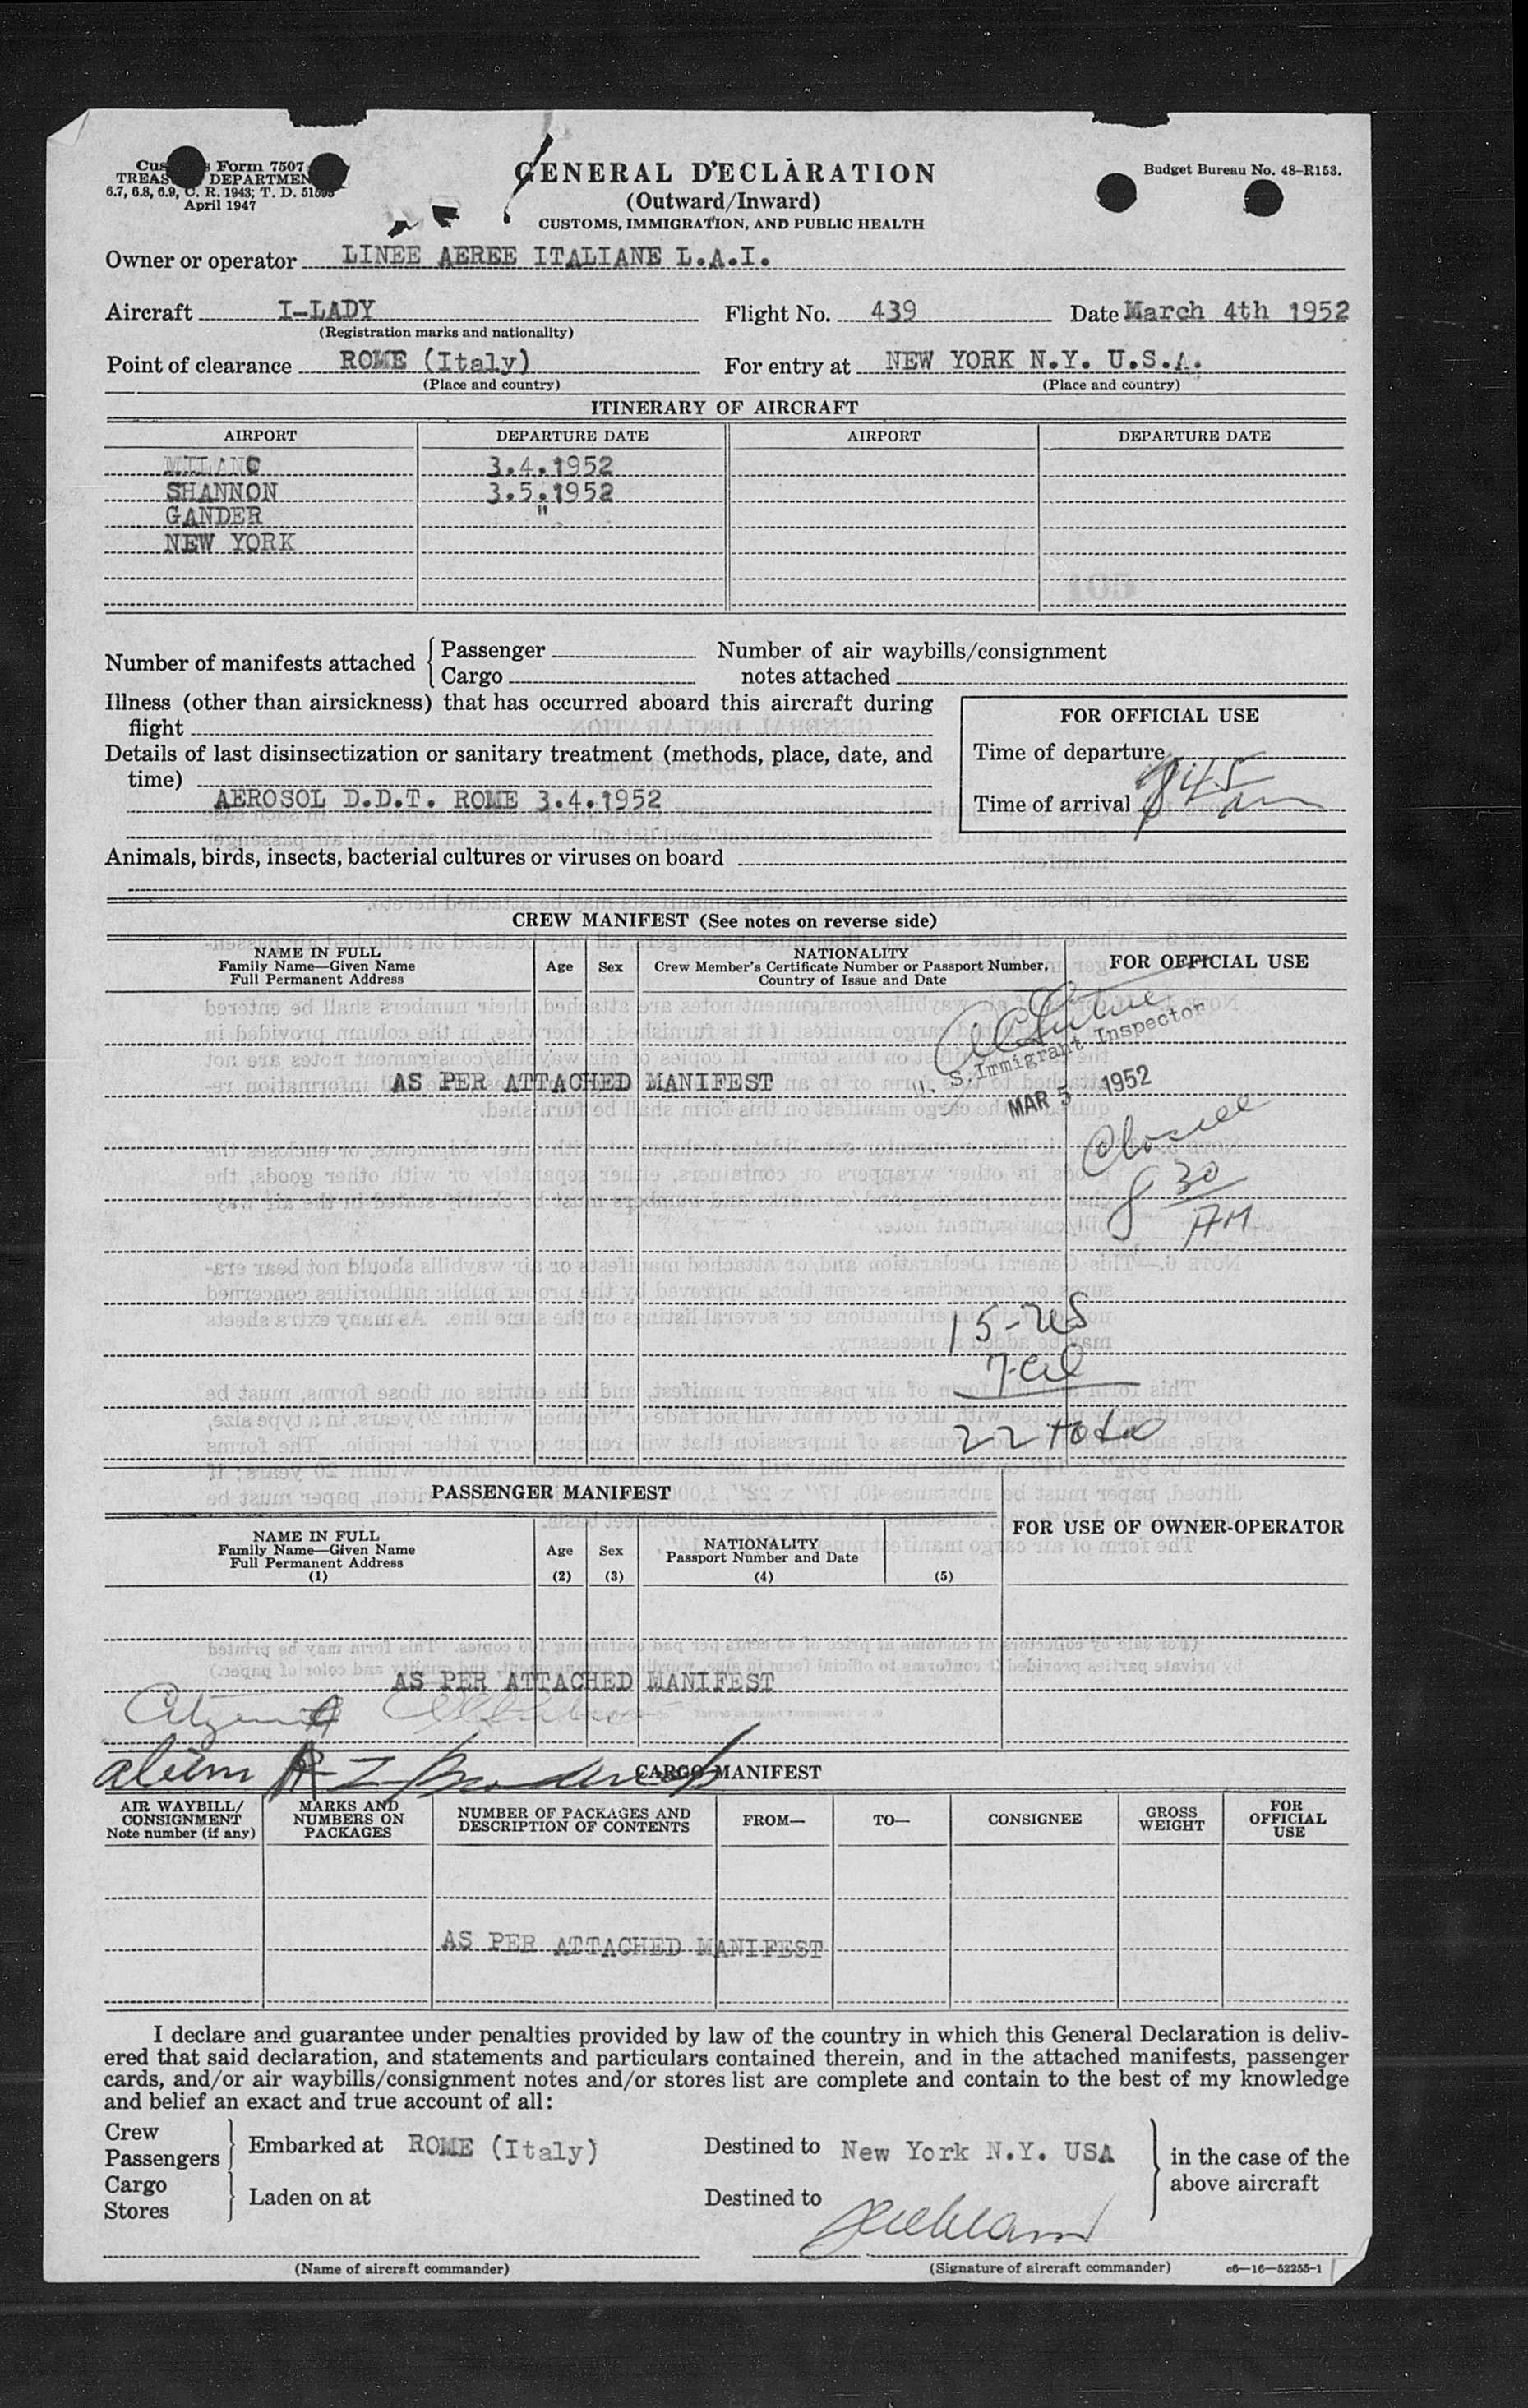 Customs Form 7507
TREASURY DEPARTMENT
6.7, 6.8, 6.9, C. R. 1943; T. D. 51593
April 1947
GENERAL DECLARATION
(Outward/Inward)
CUSTOMS, IMMIGRATION, AND PUBLIC HEALTH
Budget Bureau No. 48–R153.
Owner or operator LINEE AEREE ITALIANE L.A.I.
Aircraft I-LADY Flight No. 439 Date March 4th 1952
(Registration marks and nationality)
Point of clearance ROME (Italy) For entry at NEW YORK N.Y. U.S.A.
(Place and country) (Place and country)
ITINERARY OF AIRCRAFT
AIRPORT DEPARTURE DATE AIRPORT DEPARTURE DATE
MILANO 3.4.1952
SHANNON 3.5.1952
GANDER "
NEW YORK
Number of manifests attached { Passenger
Cargo
Number of air waybills/consignment
notes attached
Illness (other than airsickness) that has occurred aboard this aircraft during
flight
Details of last disinsectization or sanitary treatment (methods, place, date, and
time)
AEROSOL D.D.T. ROME 3.4.1952
FOR OFFICIAL USE
Time of departure
Time of arrival 845 am
Animals, birds, insects, bacterial cultures or viruses on board
CREW MANIFEST (See notes on reverse side)
NAME IN FULL
Family Name—Given Name
Full Permanent Address
Age
Sex
NATIONALITY
Crew Member's Certificate Number or Passport Number,
Country of Issue and Date
FOR OFFICIAL USE
U. S. Immigrant Inspector
AS PER ATTACHED MANIFEST
MAR 5 1952
8 30
AM
15-US
22 total
PASSENGER MANIFEST
NAME IN FULL
Family Name—Given Name
Full Permanent Address
(1)
Age
(2)
Sex
(3)
NATIONALITY
Passport Number and Date
(4)
(5)
FOR USE OF OWNER-OPERATOR
AS PER ATTACHED MANIFEST
alien
CARGO MANIFEST
AIR WAYBILL/
CONSIGNMENT
Note number (if any)
MARKS AND
NUMBERS ON
PACKAGES
NUMBER OF PACKAGES AND
DESCRIPTION OF CONTENTS
FROM—
TO—
CONSIGNEE
GROSS
WEIGHT
FOR
OFFICIAL
USE
AS PER ATTACHED MANIFEST
I declare and guarantee under penalties provided by law of the country in which this General Declaration is deliv-
ered that said declaration, and statements and particulars contained therein, and in the attached manifests, passenger
cards, and/or air waybills/consignment notes and/or stores list are complete and contain to the best of my knowledge
and belief an exact and true account of all:
Crew
Passengers } Embarked at ROME (Italy) Destined to New York N.Y. USA
Cargo
Stores } Laden on at Destined to
} in the case of the
above aircraft
(Name of aircraft commander) (Signature of aircraft commander) c6—16—52255-1